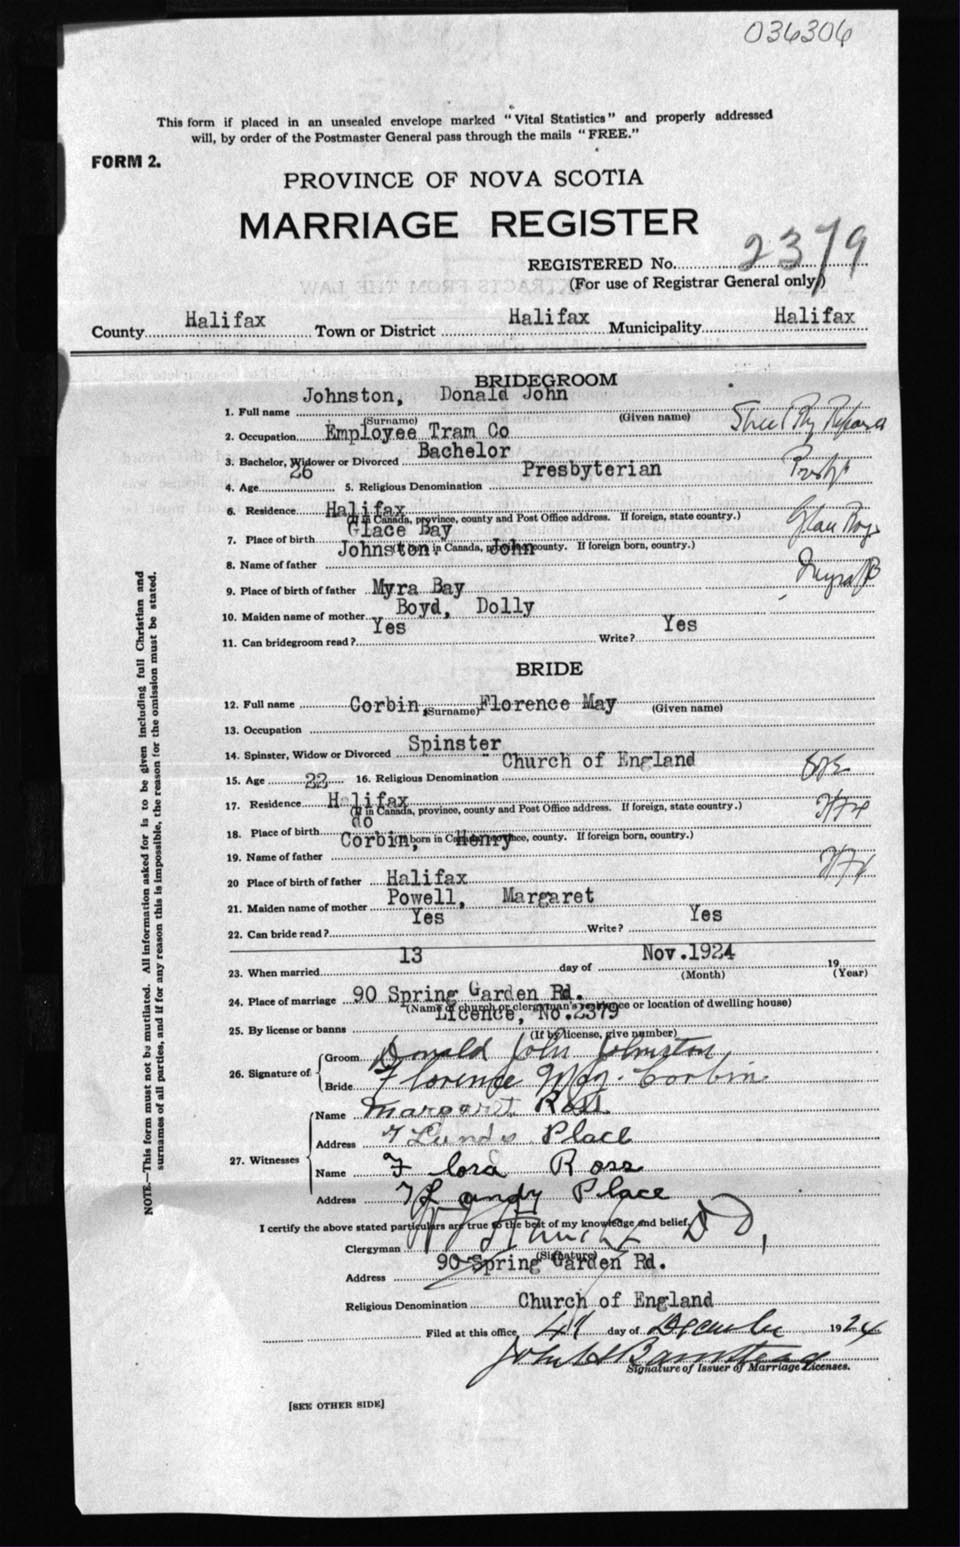 036306
This form if placed in an unsealed envelope marked "Vital Statistics" and properly addressed
will, by order of the Postmaster General pass through the mails "FREE."
FORM 2.
PROVINCE OF NOVA SCOTIA
MARRIAGE REGISTER
REGISTERED No. 2379
(For use of Registrar General only)
County Halifax Town or District Halifax Municipality Halifax
BRIDEGROOM
1. Full name Johnston, Donald John
(Surname) (Given name)
2. Occupation Employee Tram Co
3. Bachelor, Widower or Divorced Bachelor
4. Age 26 5. Religious Denomination Presbyterian
6. Residence Halifax
(If in Canada, province, county and Post Office address. If foreign, state country.)
7. Place of birth Glace Bay
(If born in Canada, province, county. If foreign born, country.)
8. Name of father Johnston, John
9. Place of birth of father Myra Bay
10. Maiden name of mother Boyd, Dolly
11. Can bridegroom read? Yes Write? Yes
BRIDE
12. Full name Corbin, Florence May
(Surname) (Given name)
13. Occupation
14. Spinster, Widow or Divorced Spinster
15. Age 22 16. Religious Denomination Church of England
17. Residence Halifax
(If in Canada, province, county and Post Office address. If foreign, state country.)
18. Place of birth do
(If born in Canada, province, county. If foreign born, country.)
19. Name of father Corbin, Henry
20 Place of birth of father Halifax
21. Maiden name of mother Powell, Margaret
22. Can bride read? Yes Write? Yes
23. When married 13 day of Nov.1924 19
(Month) (Year)
24. Place of marriage 90 Spring Garden Rd.
(Name of church or clergyman's residence or location of dwelling house)
25. By license or banns Licence, No.2379
(If by license, give number)
26. Signature of Groom Donald John Johnston
Bride Florence May Corbin
27. Witnesses Name Margaret Ross
Address 7 Lundy Place
Name Flora Ross
Address 7 Lundy Place
I certify the above stated particulars are true to the best of my knowledge and belief.
Clergyman D D,
(Signature)
Address 90 Spring Garden Rd.
Religious Denomination Church of England
Filed at this office day of December 1924
Signature of Issuer of Marriage Licenses.
[SEE OTHER SIDE]
NOTE.—This form must not be mutilated. All information asked for is to be given including full Christian and
surnames of all parties, and if for any reason this is impossible, the reason for the omission must be stated.